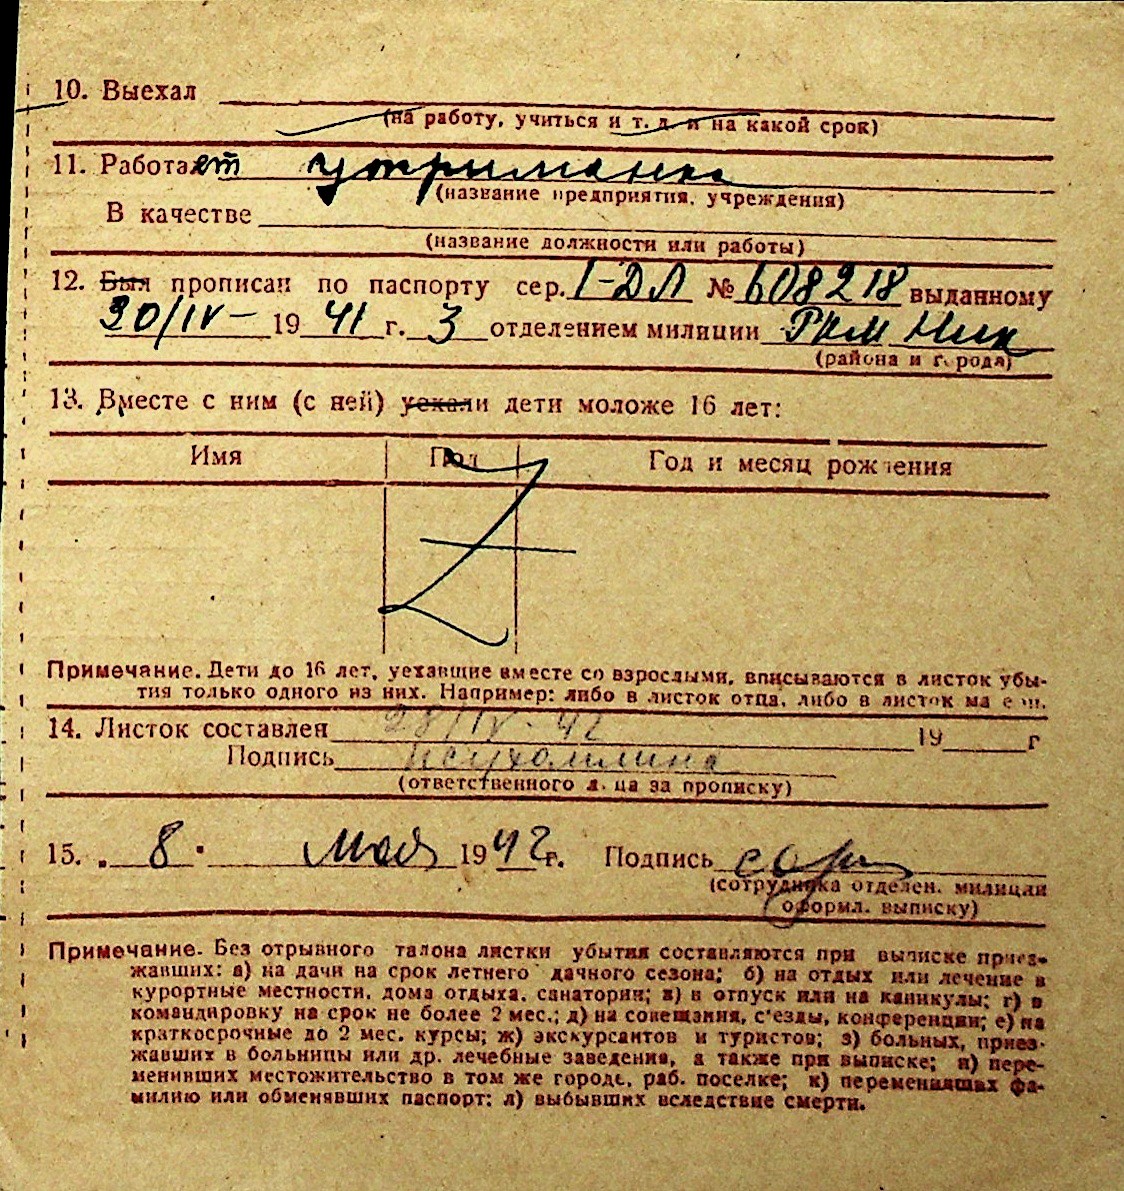 10. Выехал
(на работу, учиться и т. д. и на какой срок)
11. Работает утриманка
(название предприятия, учреждения)
В качестве
(название должности или работы)
12. Был прописан по паспорту сер. I-ДЛ № 608218 выданному
30/IV- 1941 г. 3 отделением милиции РКМ
(района и города)
13. Вместе с ним (с ней) уехали дети моложе 16 лет:
Имя Пол Год и месяц рождения
Примечание. Дети до 16 лет, уехавшие вместе со взрослыми, вписываются в листок убы-
тия только одного из них. Например: либо в листок отца, либо в листок ма е ы.
14. Листок составлен 28/IV-42 19 г
Подпись
(ответственного л. ца за прописку)
15. „ 8 " мая 1942 г. Подпись
(сотрудника отделен. милиции
оформл. выписку)
Примечание. Без отрывного талона листки убытия составляются при выписке приез-
жавших: а) на дачи на срок летнего дачного сезона; б) на отдых или лечение в
курортные местности, дома отдыха, санатории; в) в отпуск или на каникулы; г) в
командировку на срок не более 2 мес.; д) на совещания, с'езды, конференции; е) на
краткосрочные до 2 мес. курсы; ж) экскурсантов и туристов; з) больных, приез-
жавших в больницы или др. лечебные заведения, а также при выписке; и) пере-
менивших местожительство в том же городе, раб. поселке; к) переменивших фа-
милию или обменявших паспорт; л) выбывших вследствие смерти.